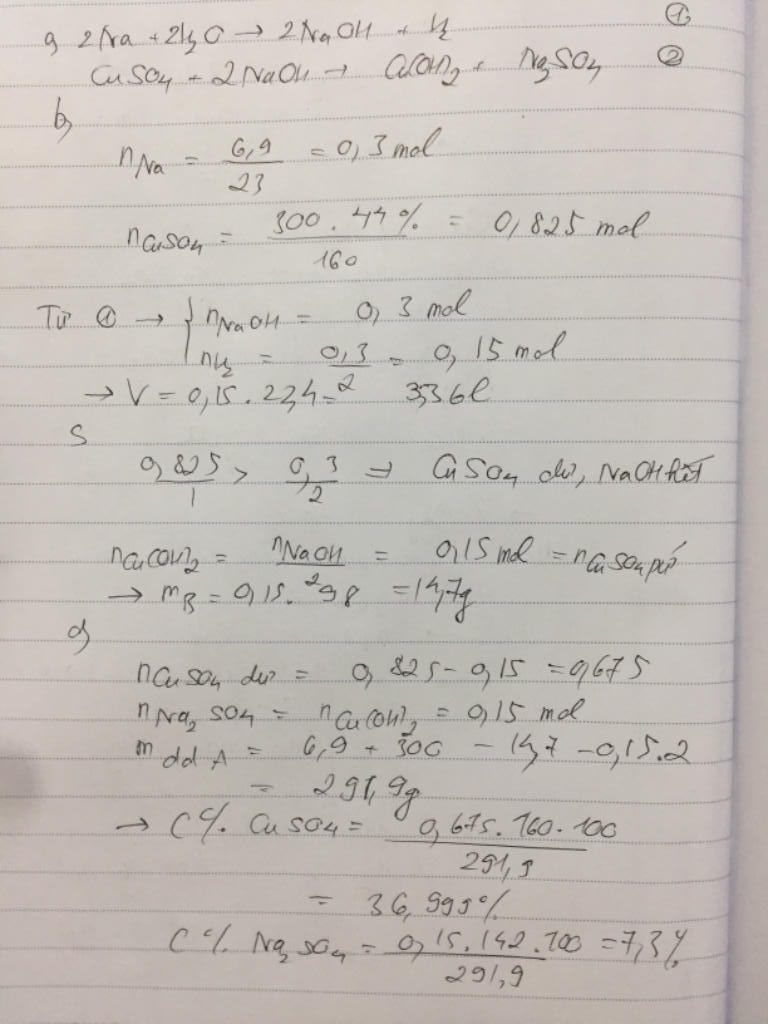 a, 2Na + 2H₂O → 2NaOH + H₂ ①
CuSO₄ + 2NaOH → Cu(OH)₂ + Na₂SO₄ ②
b,
nNa = 6,9/23 = 0,3 mol
nCuSO₄ = 300.44%/160 = 0,825 mol
Từ ① → { nNaOH = 0,3 mol
nH₂ = 0,3/2 = 0,15 mol
→ V = 0,15.22,4 = 3,36l
0,825/1 > 0,3/2 ⇒ CuSO₄ dư, NaOH hết
nCu(OH)₂ = nNaOH/2 = 0,15 mol = nCuSO₄ pứ
→ mB = 0,15.98 = 14,7g
nCuSO₄ dư = 0,825 - 0,15 = 0,675
nNa₂SO₄ = nCu(OH)₂ = 0,15 mol
m dd A = 6,9 + 300 - 14,7 - 0,15.2
= 291,9g
→ C% CuSO₄ = 0,675.160.100/291,9
= 36,999%
C% Na₂SO₄ = 0,15.142.100/291,9 = 7,3%